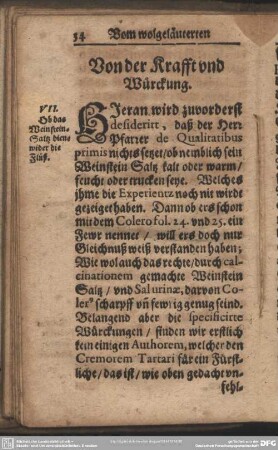 34 Vom wolgeläuterten
Von der Krafft vnd
Würckung.
VII.
Ob das
Weinstein-
Saltz diene
wider die
Flüß.
HIeran wird zuvorderst
desideriit, daß der Herr
Pfarrer de Qualitatibus
primis nichts setzet / ob nemblich sein
Weinstein Saltz kalt oder warm /
feucht oder trucken seye. Welches
jhme die Experientz noch nit wirdt
gezeiget haben. Dann ob ers schon
mit dem Colero fol. 24. vnd 25. ein
Fewr nennet / will ers doch nur
Gleichnuß weiß verstanden haben;
Wie wol auch das rechte / durch cal-
cinationem gemachte Weinstein
Saltz / vnd Sal urinæ, darvon Co-
ler9 scharpff vñ fewrig genug seind.
Belangend aber die specificirte
Würckungen / finden wir erstlich
kein einigen Authorem, welcher den
Cremorem Tartari für ein Fürst-
liche / das ist / wie oben gedacht vn-
fehl-